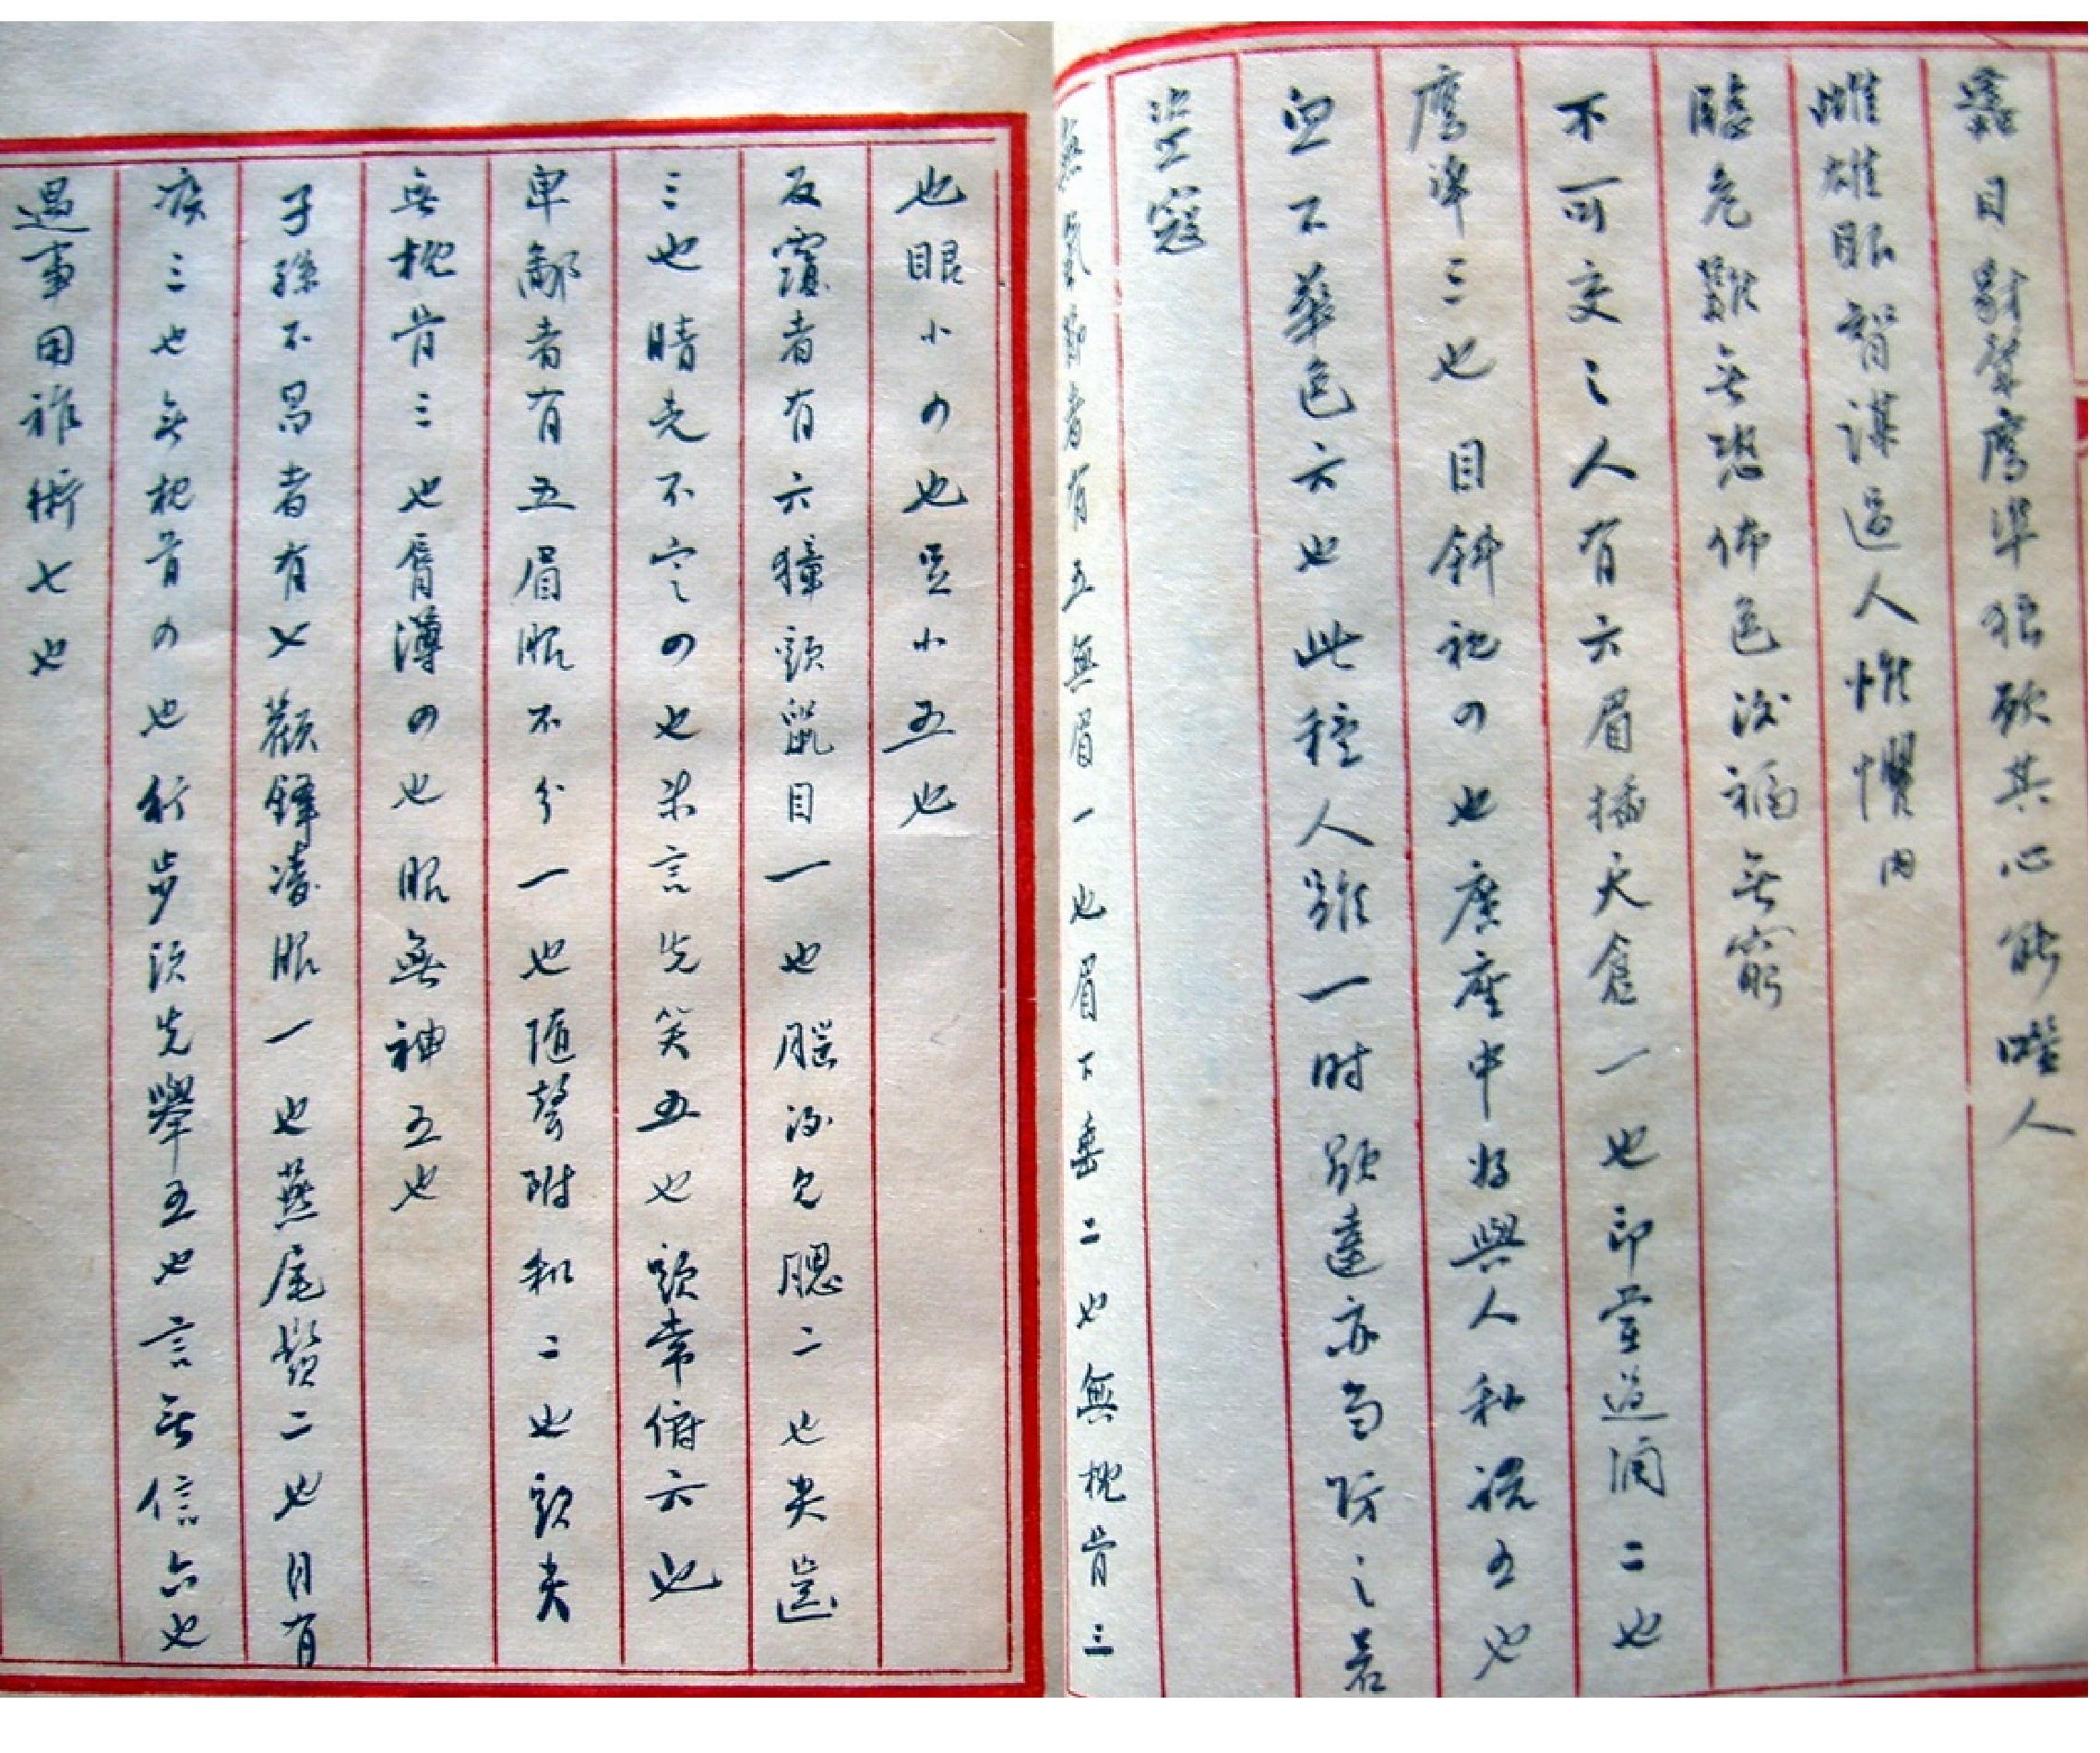 蠭目豺聲鷹準狼欲其心能噬人
雌雄眼智謀過人惟懼內
臨危難無恐怖色後福無窮
不可交之人有六眉插天倉一也印堂過闊二也
鷹準三也目斜視四也廣座中好與人私說五也
血不華色六也此種人雖一时顯達亦當防之若
盜寇
無氣節者有五無眉一也眉下垂二也無枕骨三
也眼小四也耳小五也
反覆者有六獐頭鼠目一也腦後見腮二也尖齒
三也睛光不定四也未言先笑五也頭常俯六也
卑鄙者有五眉眼不分一也隨聲附和二也頭尖
無枕骨三也脣薄四也眼無神五也
子孫不昌者有七顴鋒凌眼一也燕尾鬚二也月有
痕三也無枕骨四也行步頭先舉五也言無信六也
遇事用詐術七也